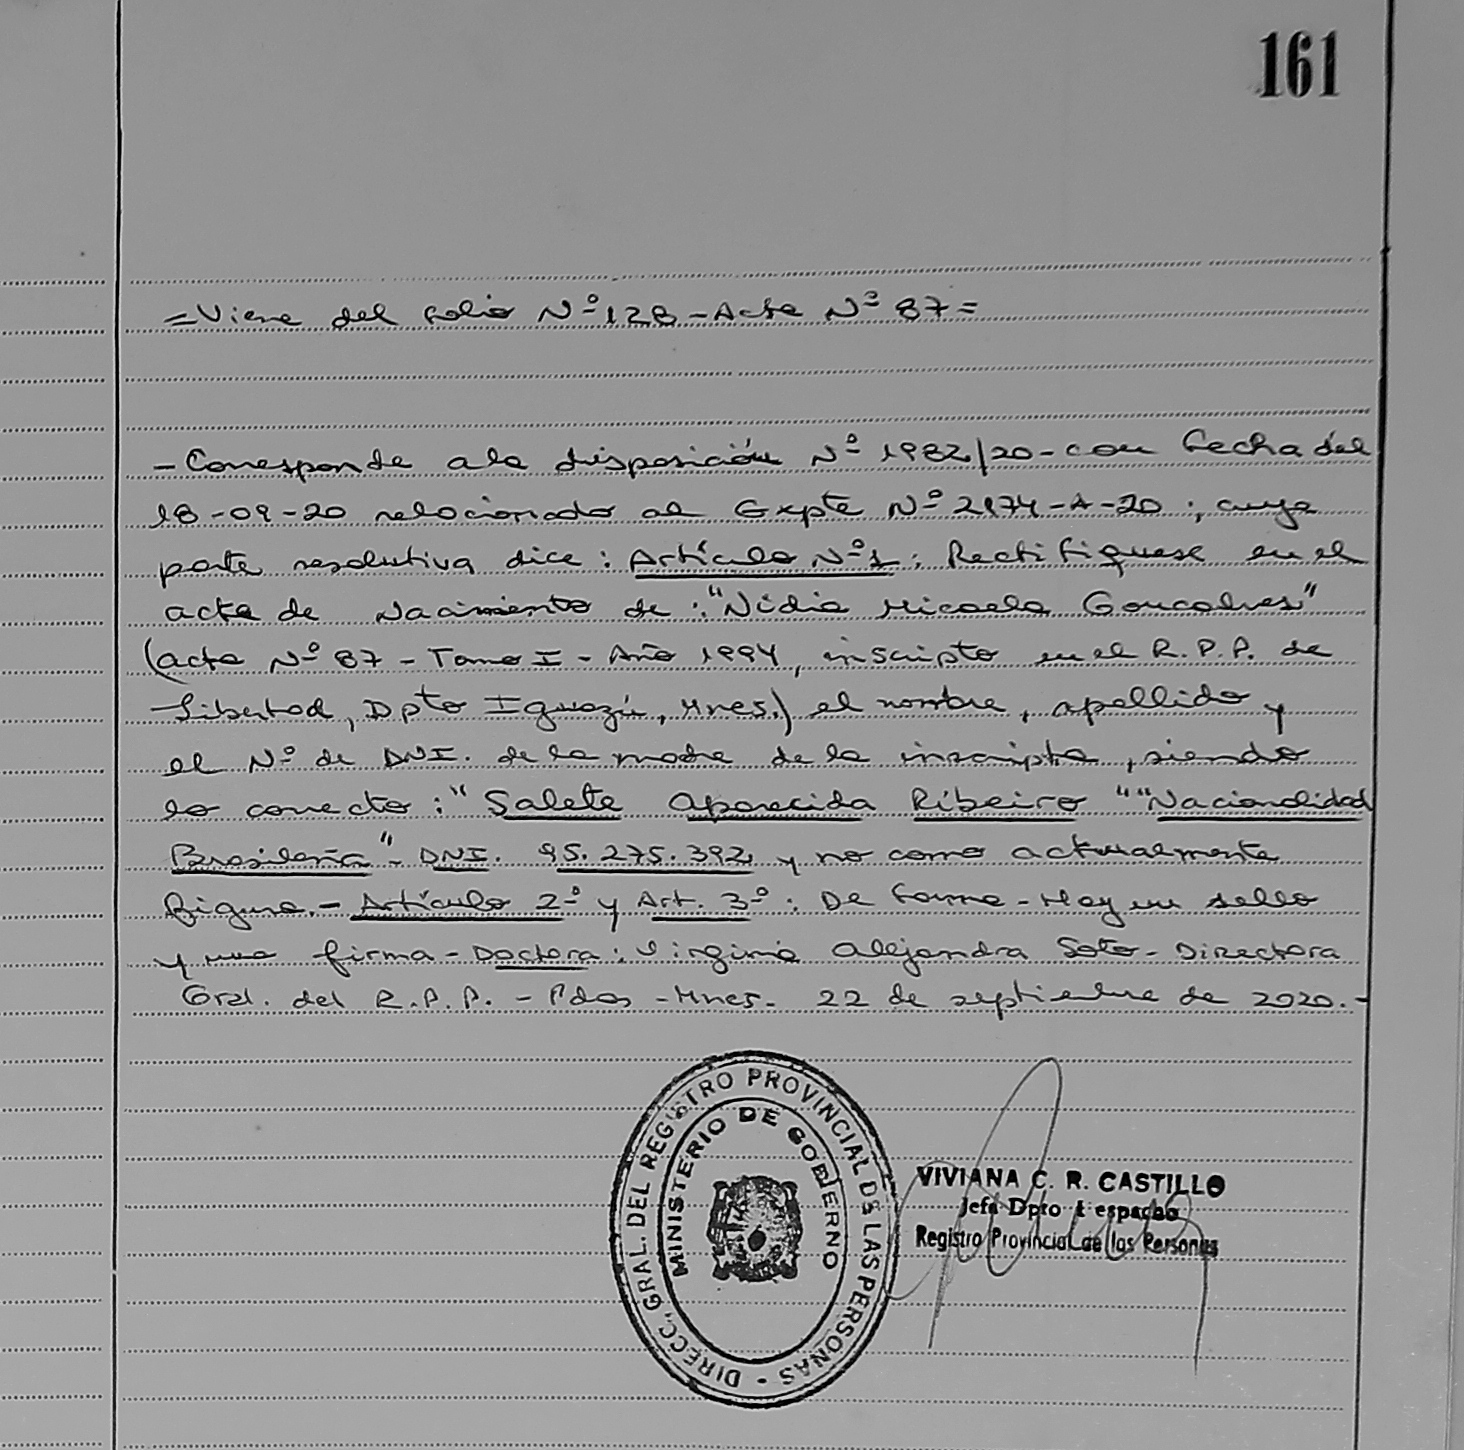 161
=Viene del folio Nº 128-Acta Nº 87=
-Corresponde a la disposición Nº 1982/20-con fecha del
18-09-20 relacionado al Expte Nº 2174-A-20; cuya
parte resolutiva dice: Artículo Nº1: Rectifiquese en el
acta de Nacimiento de: "Nidia Micaela Goncalves"
(acta Nº 87 - Tomo I - Año 1994, inscripto en el R.P.P. de
Libertad, Dpto Iguazú, Mnes.) el nombre, apellido y
el Nº de DNI. de la madre de la inscripta, siendo
lo correcto: "Salete Aparecida Ribeiro" "Nacionalidad
Brasileña"- DNI. 95.275.392 y no como actualmente
figura.- Artículo 2º y Art. 3º: De forma - Hay un sello
y una firma - Doctora: Virginia Alejandra Soto - Directora
Gral. del R.P.P. - Pdas - Mnes - 22 de septiembre de 2020.-
DIRECC. GRAL. DEL REGISTRO PROVINCIAL DE LAS PERSONAS -
MINISTERIO DE GOBIERNO
VIVIANA C. R. CASTILLO
Jefa Dpto Despacho
Registro Provincial de las Personas